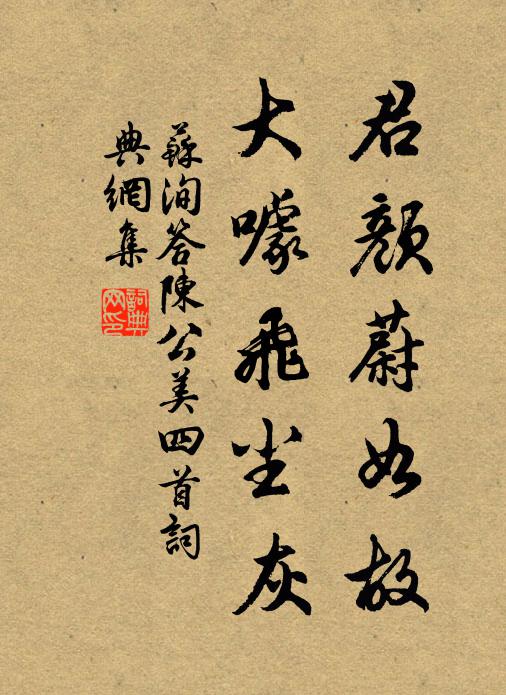 君顏蔚如故
大噱飛尘灰
蘇洵答陳公美四首詞
典網集
詞典网印